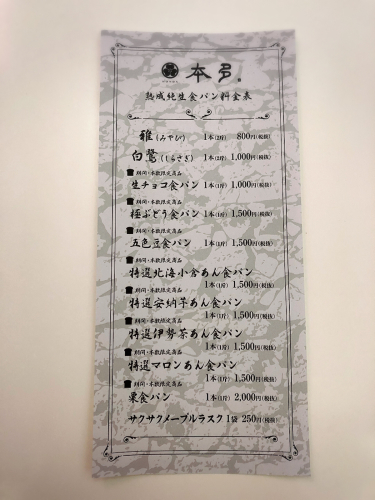 本多
熟成純生食パン料金表
雅(みやび) 1本(2斤) 800円(税抜)
白鷺(しらさぎ) 1本(2斤) 1,000円(税抜)
期間・本数限定商品
生チョコ食パン 1本(1斤) 1,000円(税抜)
期間・本数限定商品
極ぶどう食パン 1本(1斤) 1,500円(税抜)
期間・本数限定商品
五色豆食パン 1本(1斤) 1,500円(税抜)
期間・本数限定商品
特選北海小倉あん食パン
1本(1斤) 1,500円(税抜)
期間・本数限定商品
特選安納芋あん食パン
1本(1斤) 1,500円(税抜)
期間・本数限定商品
特選伊勢茶あん食パン
1本(1斤) 1,500円(税抜)
期間・本数限定商品
特選マロンあん食パン
1本(1斤) 1,500円(税抜)
期間・本数限定商品
栗食パン 1本(1斤) 2,000円(税抜)
サクサクメープルラスク 1袋 250円(税抜)